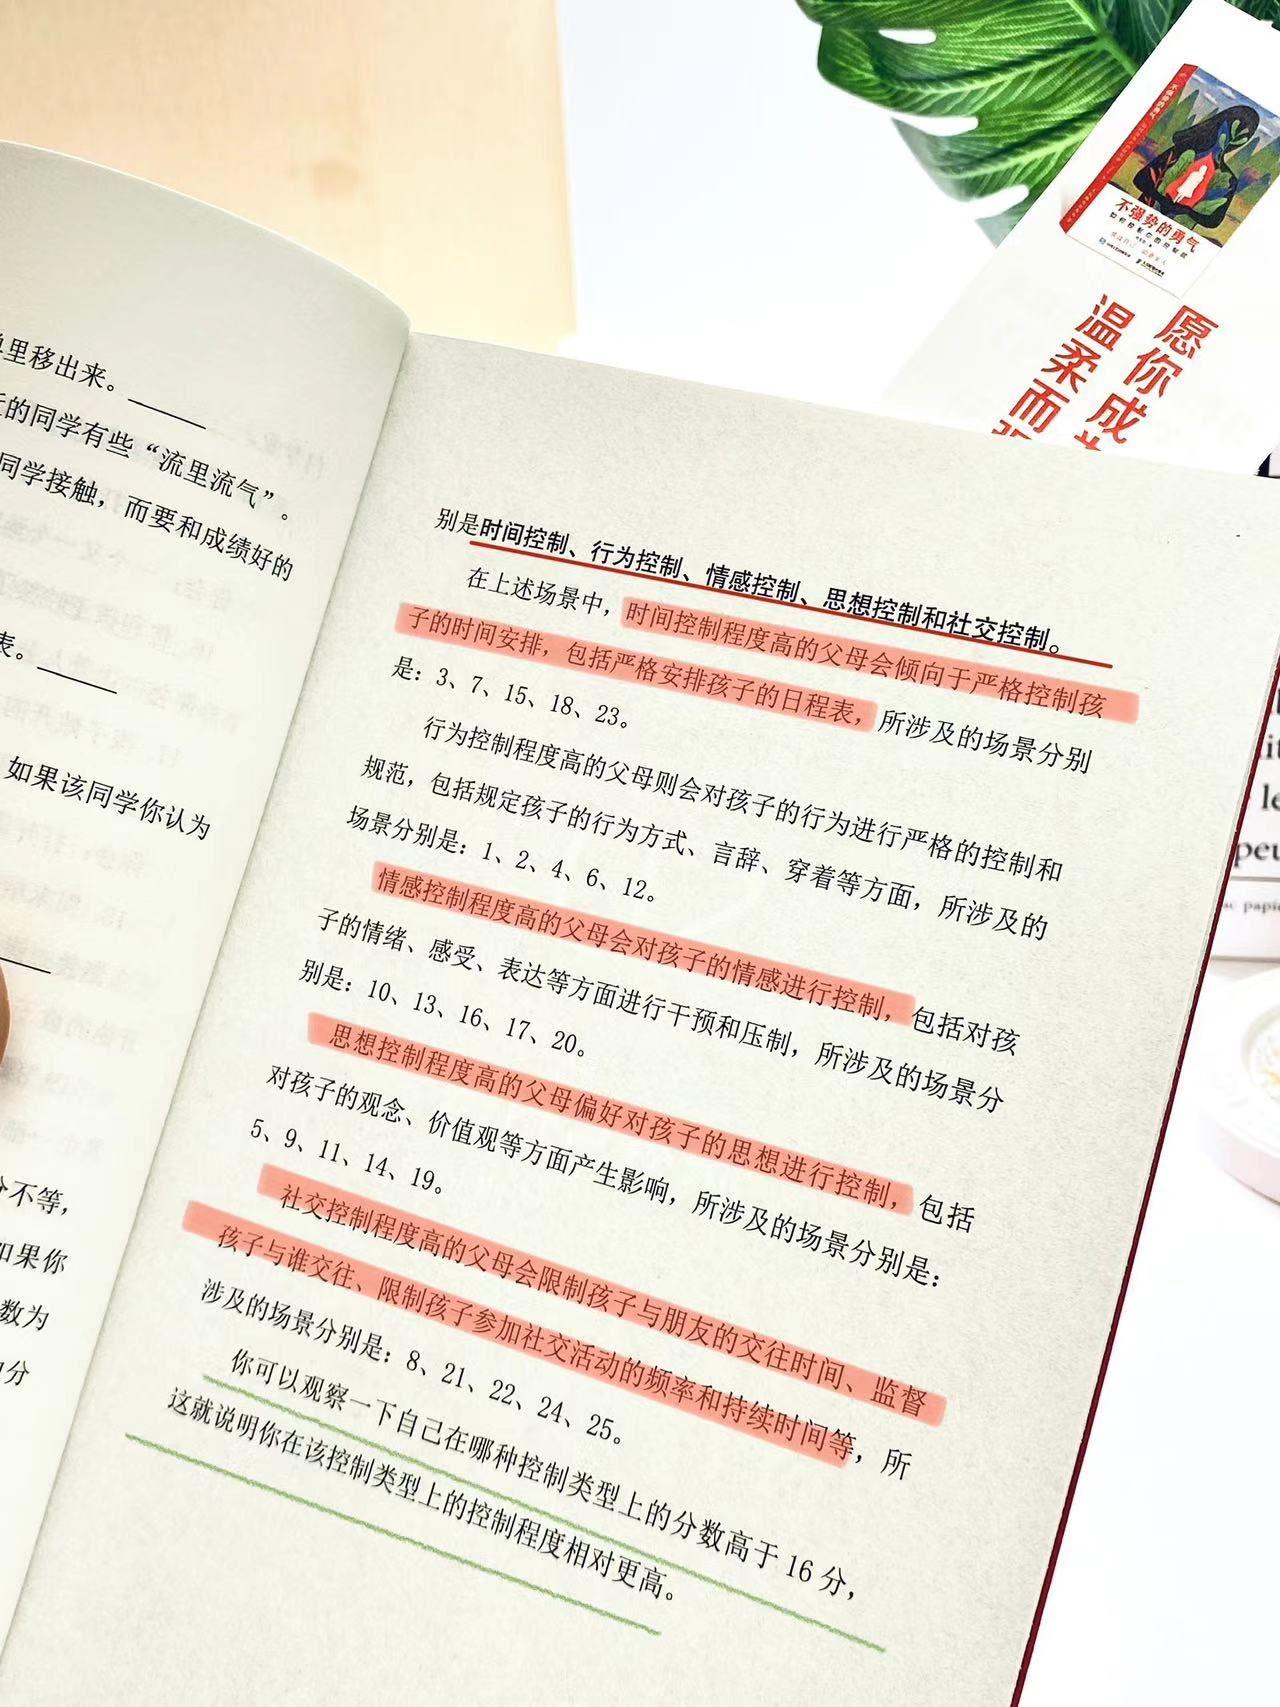 不强势的勇气
如何控制你的控制欲
愿你成为
温柔而强
单里移出来。
近的同学有些“流里流气”。
同学接触，而要和成绩好的
表。
如果该同学你认为
分不等，
如果你
数为
分
别是时间控制、行为控制、情感控制、思想控制和社交控制。
在上述场景中，时间控制程度高的父母会倾向于严格控制孩
子的时间安排，包括严格安排孩子的日程表，所涉及的场景分别
是：3、7、15、18、23。
行为控制程度高的父母则会对孩子的行为进行严格的控制和
规范，包括规定孩子的行为方式、言辞、穿着等方面，所涉及的
场景分别是：1、2、4、6、12。
情感控制程度高的父母会对孩子的情感进行控制，包括对孩
子的情绪、感受、表达等方面进行干预和压制，所涉及的场景分
别是：10、13、16、17、20。
思想控制程度高的父母偏好对孩子的思想进行控制，包括
对孩子的观念、价值观等方面产生影响，所涉及的场景分别是：
5、9、11、14、19。
社交控制程度高的父母会限制孩子与朋友的交往时间、监督
孩子与谁交往、限制孩子参加社交活动的频率和持续时间等，所
涉及的场景分别是：8、21、22、24、25。
你可以观察一下自己在哪种控制类型上的分数高于16分，
这就说明你在该控制类型上的控制程度相对更高。